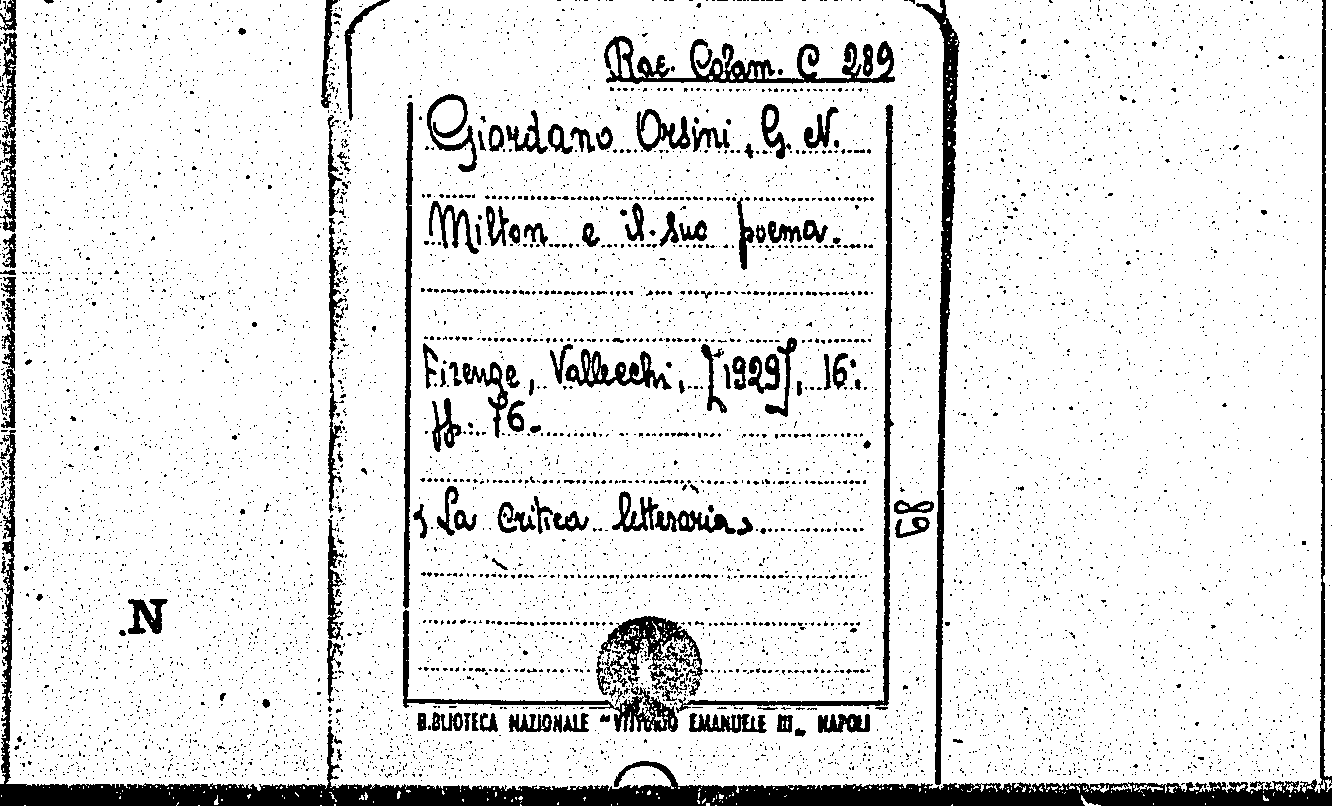 Rac. Colam. C 289
Giordano Orsini, G. N.
Milton e il suo poema.
Firenze, Vallecchi, [1929], 16°.
pp. 76.
La critica letteraria.
68
N
BIBLIOTECA NAZIONALE "VITTORIO EMANUELE III„ NAPOLI